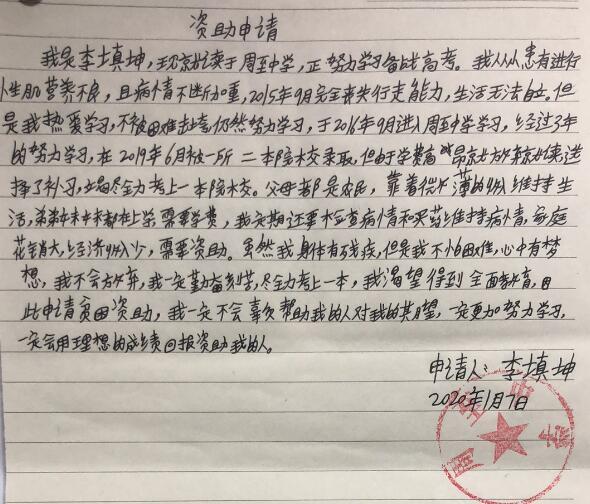 资助申请
我是李填坤，现就读于周至中学，正努力学习备战高考。我从小患有进行
性肌营养不良，且病情不断加重，2015年9月完全丧失行走能力，生活无法自立。但
是我热爱学习，不被困难击垮仍然努力学习，于2016年9月进入周至中学学习，经过3年
的努力学习，在2019年6月被一所二本院校录取，但由于学费高昂就放弃就读选
择了补习，立志尽全力考上一本院校。父母都是农民，靠着微薄的收入维持生
活，弟弟年末都在上学需要学费，我定期还要检查病情和买药维持病情，家庭
花销大，经济收入少，需要资助。虽然我身体有残疾，但是我不怕困难，心中有梦
想，我不会放弃，我一定勤奋刻苦，尽全力考上一本，我渴望得到全面教育，因
此申请贫困资助，我一定不会辜负帮助我的人对我的期望，一定更加努力学习，
一定会用理想的成绩回报资助我的人。
申请人：李填坤
2020年1月7日
周至中学